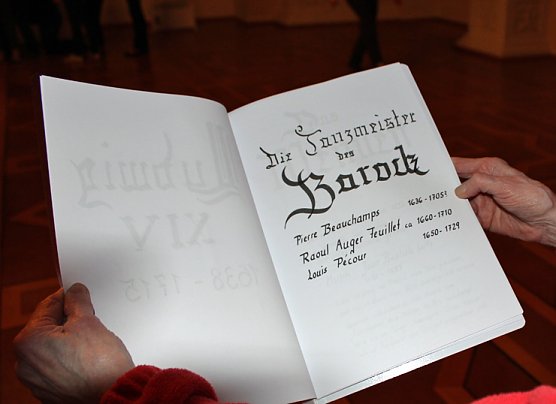 Die Tanzmeister
des
Barock
Pierre Beauchamps 1636-1705?
Raoul Auger Feuillet ca 1660-1710
Louis Pécour 1650-1729
Ludwig
XIV
1638-1715